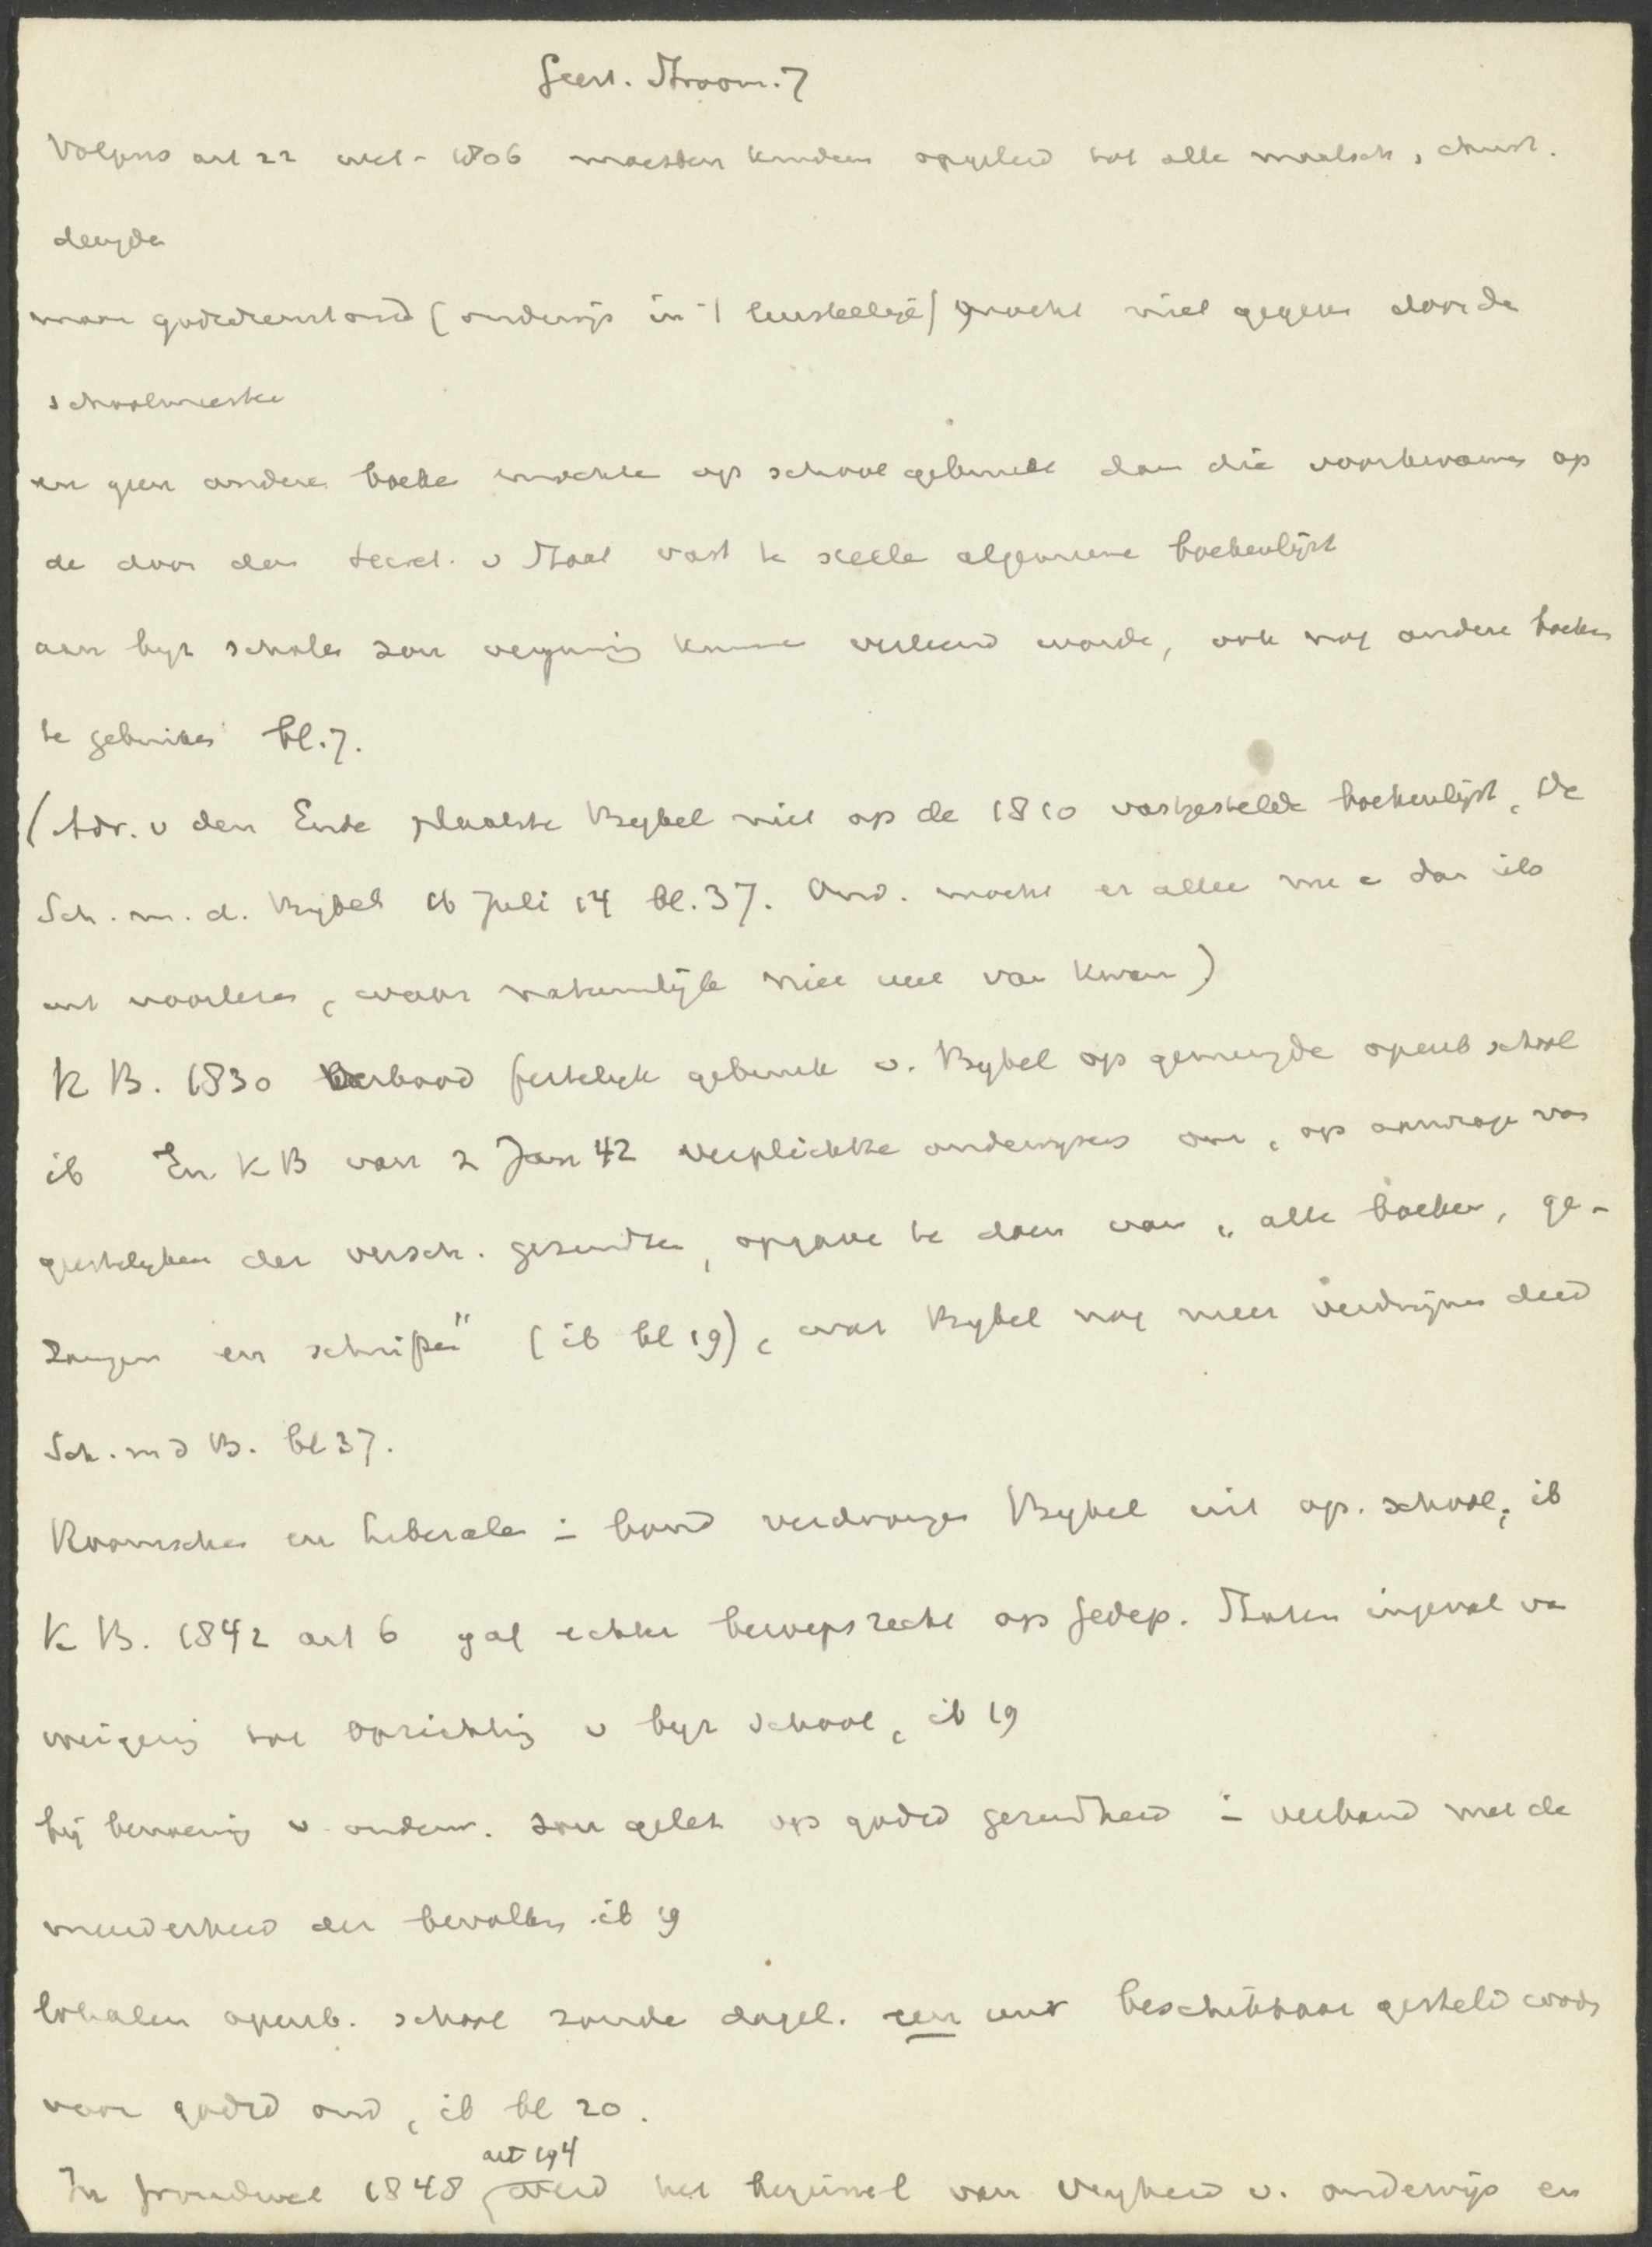 Geest. Stroom. 7
Volgens art 22 wet - 1806 moesten kinderen opgeleid tot alle maatsch, christ.
deugden
maar godsdienstond (onderwijs in 't leerstellige) mocht niet gegeven door de
schoolmeester
en geen andere boeken mochten op school gebruikt dan die voorkwamen op
de door den Secret. v Staat vast te stellen algemeene boekenlijst
aan byz scholen zou vergunning kunnen verleend worden, ook nog andere boeken
te gebruiken bl. 7.
(Adr. v den Ende plaatste Bybel niet op de 1810 vastgestelde boekenlijst, De
Sch. m. d. Bybel 16 Juli 14 bl. 37. Ond. mocht er alleen nu e dan iets
uit voorlezen, waar natuurlijk niet veel van kwam)
K B. 1830 verbood feitelijk gebruik v. Bybel op gemengde openb school
ib En K B van 2 Jan 42 verplichtte onderwyzers om, op aanvrage van
geestelyken der versch. gezindten, opgave te doen van "alle boeken, ge-
zangen en schriften" (ib bl 19), wat Bybel nog meer verdwijnen deed
Sch. m d B. bl 37.
Roomschen en liberalen in bond verdrongen Bybel uit op. school, ib
K B. 1842 art 6 gaf echter beroepsrecht op Gedep. Staten ingeval van
weigering tot oprichting v byz school, ib 19
bij benoeming v. onderw. zou gelet op godsd gezindheid in verband met de
meerderheid der bevolking ib 19
lokalen openb. school zouden dagel. een uur beschikbaar gesteld worden
voor godsd ond, ib bl 20.
art 194
In Grondwet 1848 werd het beginsel van vryheid v. onderwijs en